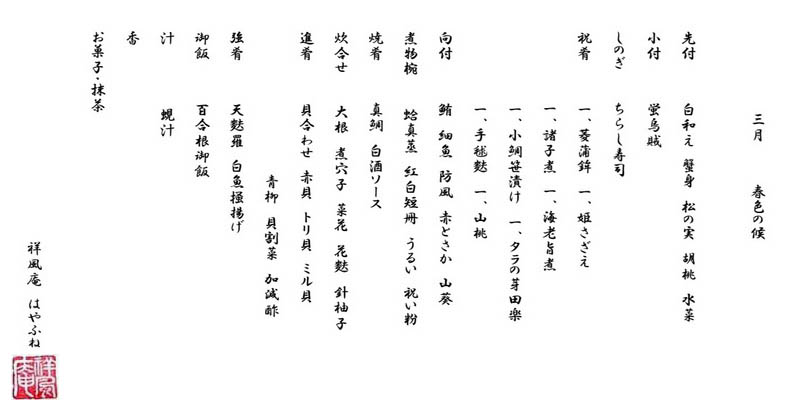 三月 春色の候
先付 白和え 蟹身 松の実 胡桃 水菜
小付 蛍烏賊
しのぎ ちらし寿司
祝肴 一、菱蒲鉾 一、姫さざえ
一、諸子煮 一、海老旨煮
一、小鯛笹漬け 一、タラの芽田楽
一、手毬麩 一、山桃
向付 鮪 細魚 防風 赤とさか 山葵
煮物椀 蛤真蒸 紅白短冊 うるい 祝い粉
焼肴 真鯛 白酒ソース
炊合せ 大根 煮穴子 菜花 花麩 針柚子
進肴 貝合わせ 赤貝 トリ貝 ミル貝
青柳 貝割菜 加減酢
強肴 天麩羅 白魚掻揚げ
御飯 百合根御飯
汁 蜆汁
香
お菓子・抹茶
祥風庵 はやふね
祥風庵